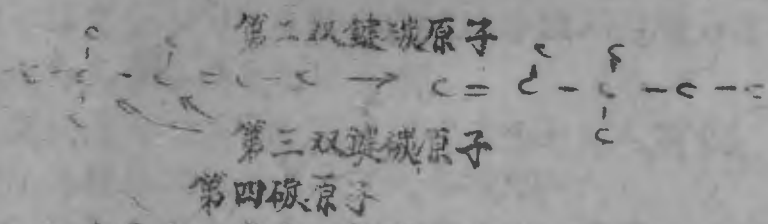 第二双键碳原子
C
C
C-C-C=C-C → C=C-C-C-C
C
C
第三双键碳原子
第四碳原子